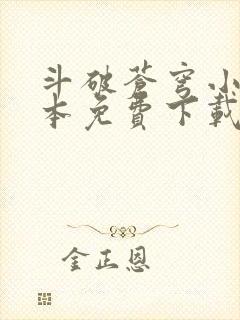 斗破苍穹小
本免费下载
金正恩